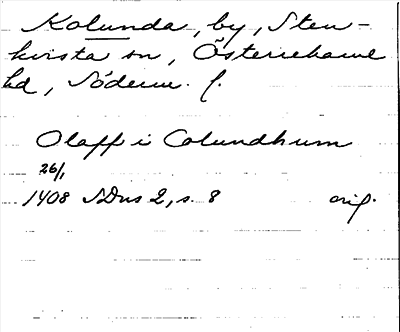 Kolunda, by, Sten-
kvista sn, Österrekarne
hd, Söderm. l.
Olaff i Colundhum
26/1
1408 SDns 2, s. 8 orig.